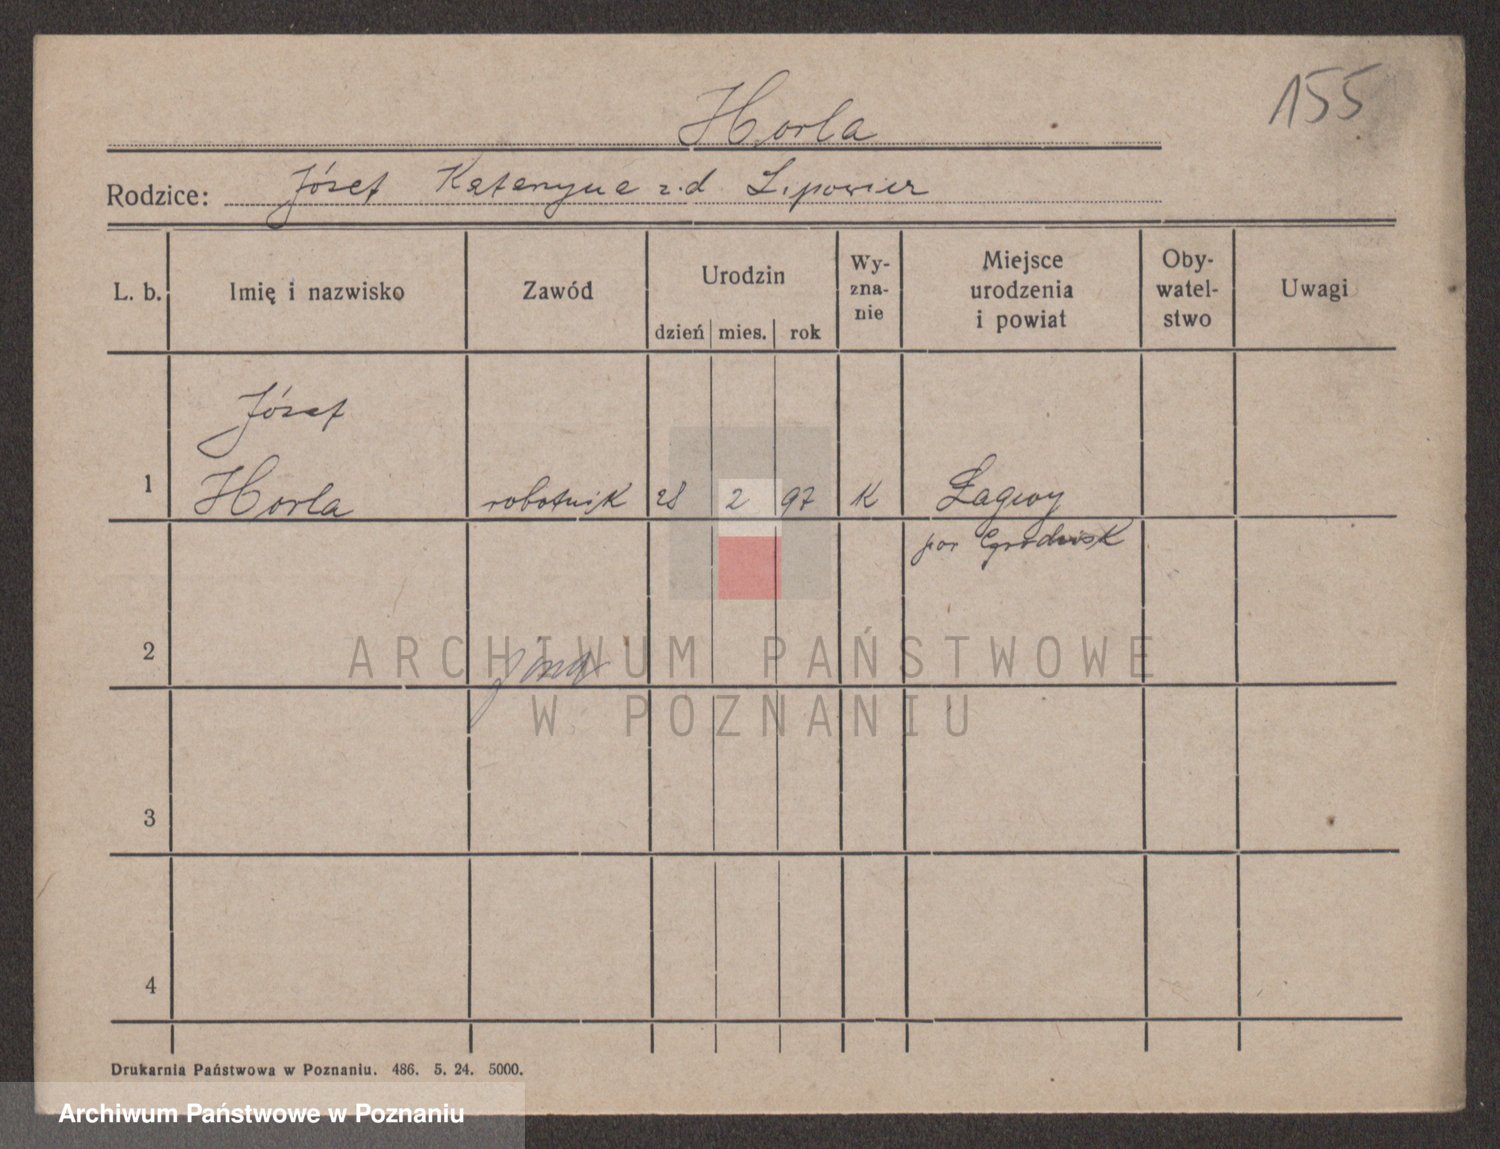 155
Horla
Rodzice: Józef Katarzyna z.d Lipowicz
L. b. Imię i nazwisko Zawód Urodzin Wy-zna-nie Miejsce urodzenia i powiat Oby-watel-stwo Uwagi
dzień mies. rok
Józef
1 Horla robotnik 28 2 97 K Łagwy
pow Grodzisk
2
3
4
Drukarnia Państwowa w Poznaniu. 486. 5. 24. 5000.
ARCHIWUM PAŃSTWOWE
W POZNANIU
Archiwum Państwowe w Poznaniu